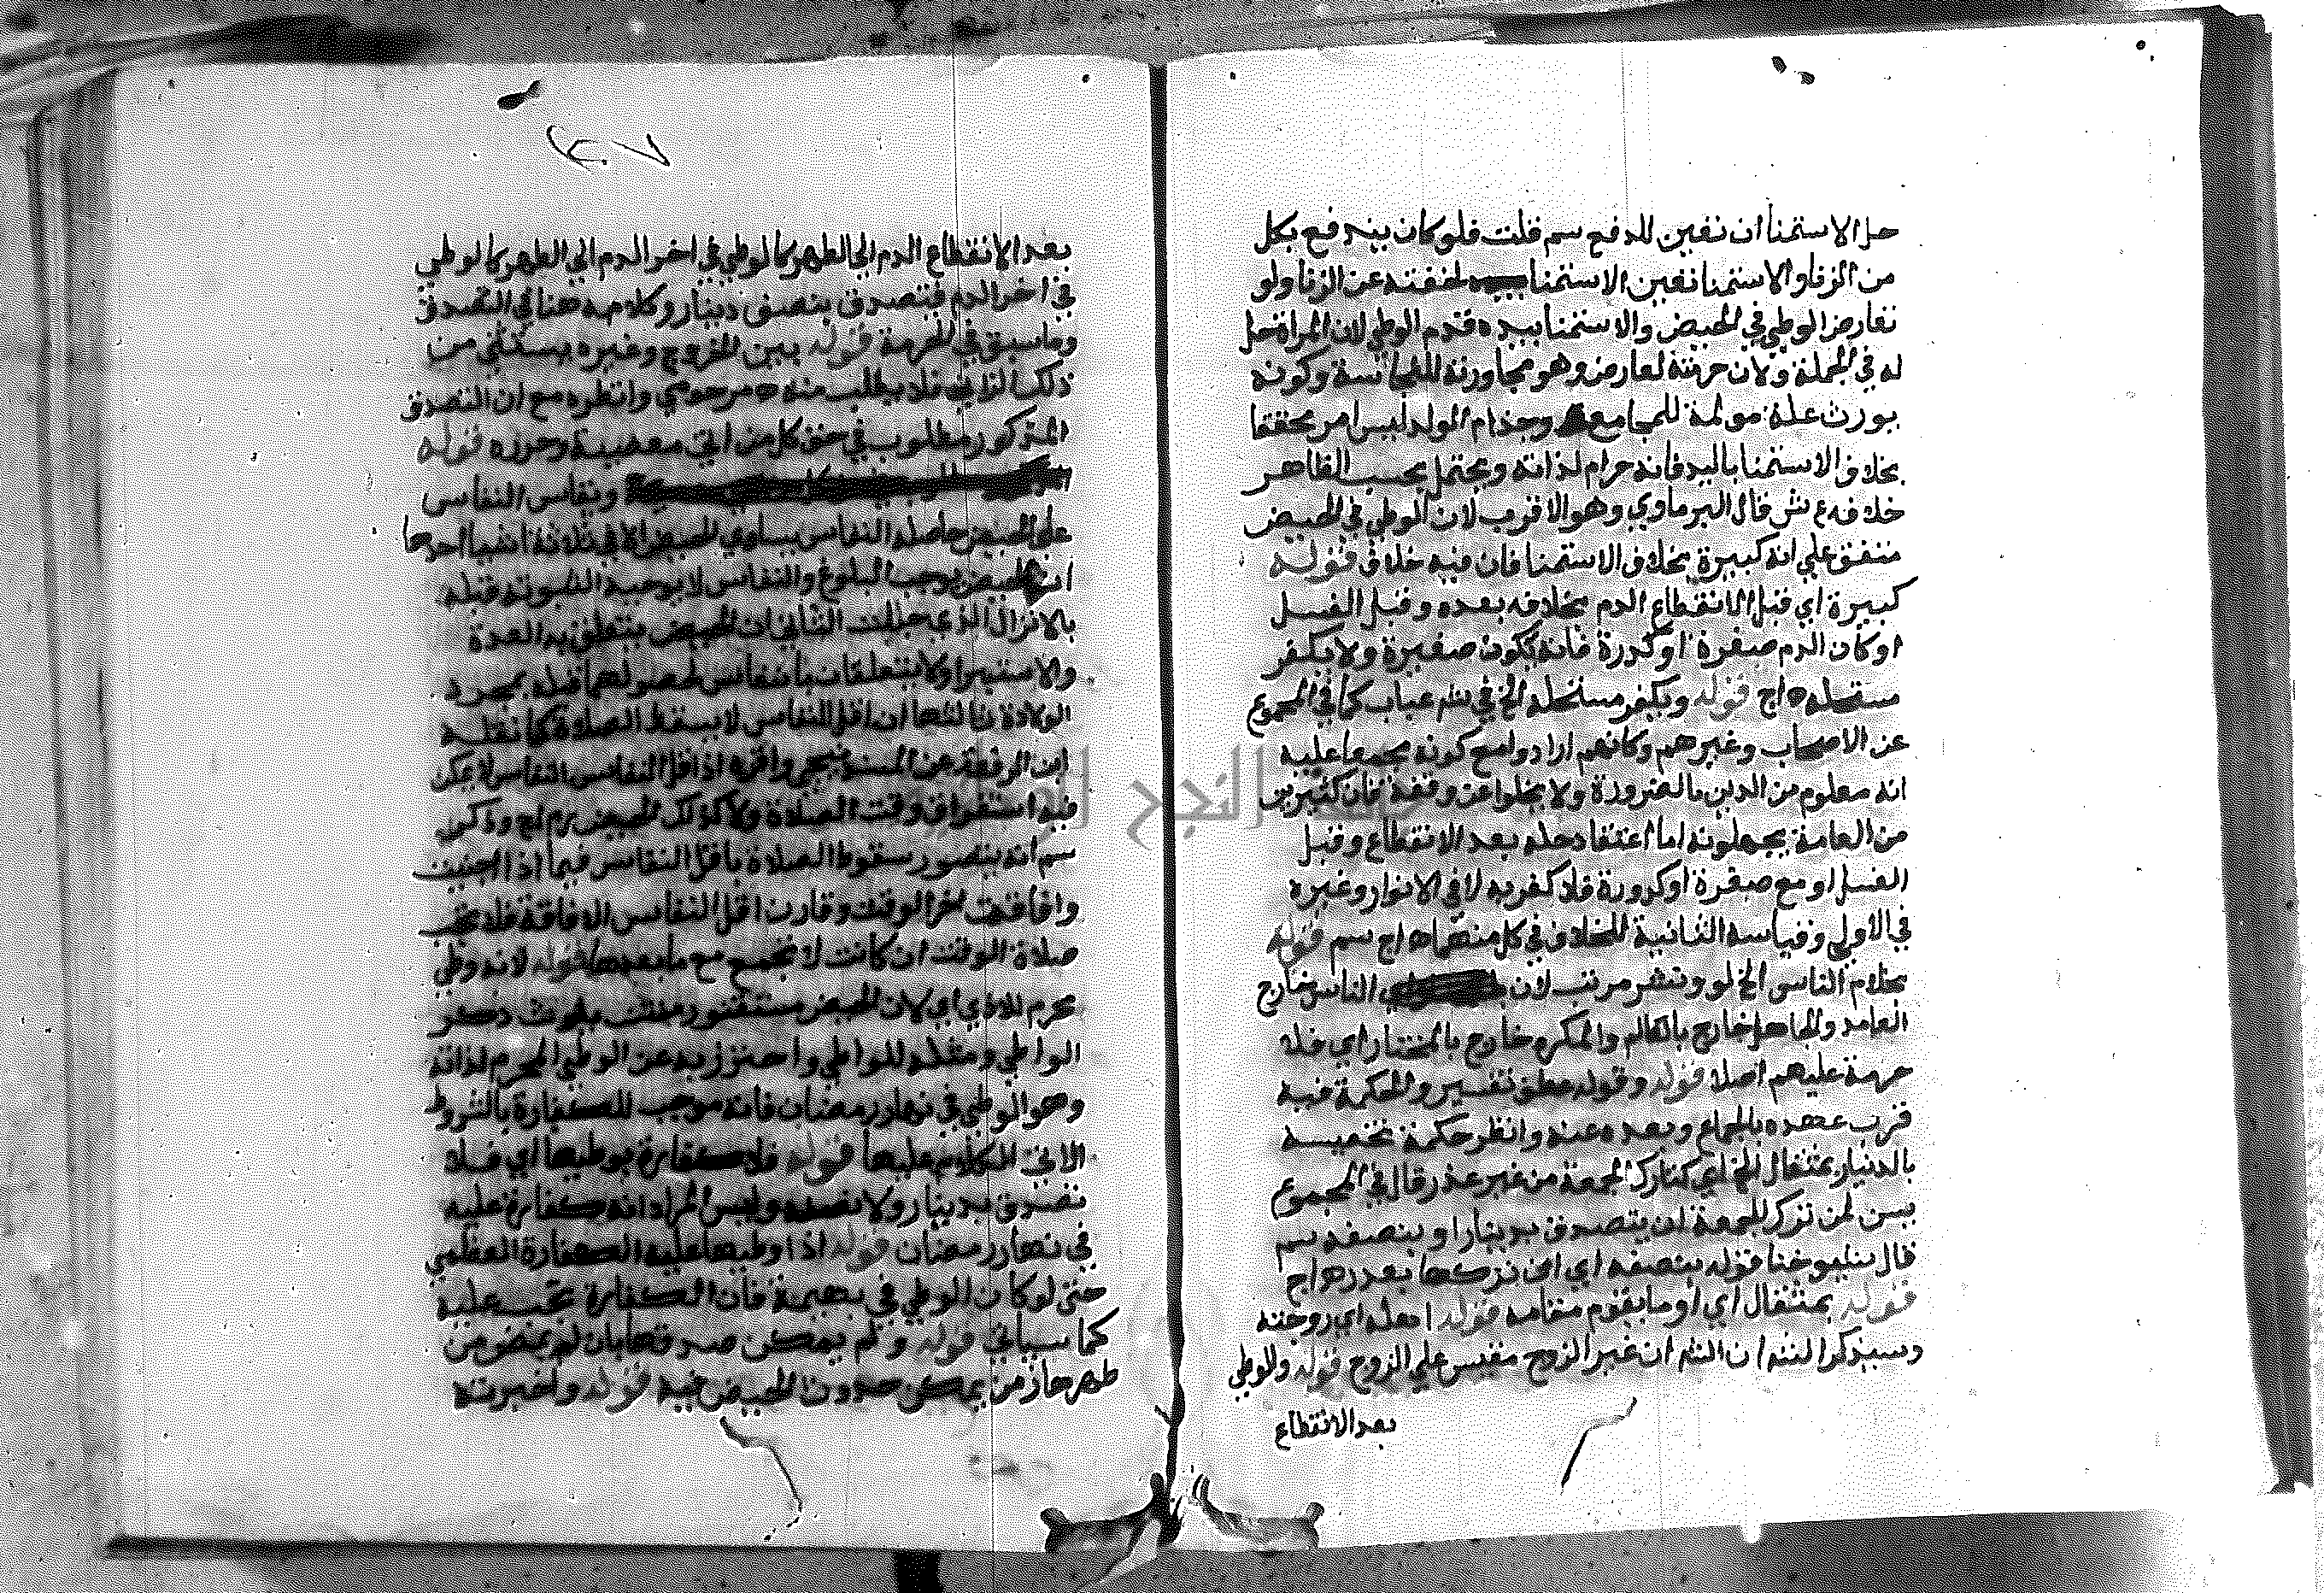 حل الاستمنا ان تعين للدفع سم قلت فلو كان يندفع بكل
من الزنا والاستمنا تعين الاستمنا لخفته عن الزنا ولو
تعارض الوطي في الحيض والاستمنا بيده قدم الوطي لان المراة حل
له في الجملة ولان حرمته لعارض وهو مجاورته للنجاسة وكونه
يورث علة مولمة للمجامع وجذام المولد ليس امر محققا
بخلاف الاستمنا باليد فانه حرام لذاته ويحتمل بحسب الظاهر
خلافه ع ش قال البرماوي وهو الاقرب لان الوطي في الحيض
متفق علي انه كبيرة بخلاف الاستمنا فان فيه خلاف قوله
كبيرة اي قبل الانقطاع الدم بخلافه بعده وقبل الغسل
او كان الدم صفرة او كدرة فانه يكون صغيرة ولا يكفر
مستحله ه اج قوله ويكفر مستحله الخ في شر عباب كما في المجموع
عن الاصحاب وغيرهم وكانهم ارادوا مع كونه مجمعا عليه
انه معلوم من الدين بالضرورة ولا يخلوا عن وقفة فان كثيرين
من العامة يجهلونه اما اعتقاد حله بعد الانقطاع وقبل
الغسل او مع صفرة او كدورة فلا كفر به لا في الانوار وغيره
في الاولي وقياسه الثانية للخلاف في كل منهما ه اج سم قوله
بخلاف الناسي الخ لو ونشر مرتب لان الناسي خارج
العامد والجاهل خارج بالعالم والمكره خارج بالمختار اي فلا
حرمة عليهم اصلا قوله وقوله عطق تفسير والحكمة فيه
قرب عهده بالجماع وبعده عنه وانظر حكمة تخصيسه
بالدينار بمثقال الخ اي كتارك الجمعة من غير عذر قال في المجموع
يسن لمن ترك الجمعة ان يتصدق بدينار او بنصفه سم
قال شيخنا قوله بنصفه اي ان تركها بعذر ه اج
قوله بمثقال اي او ما يقوم مقامه قوله اهله اي زوجته
وسيذكر الش ان الش ان غير الزوج مقيس علي الزوج قوله وللوطي
بعد الانقطاع
بعد الانقطاع الدم الي الطهر كالوطي في اخر الدم الي الطهر كالوطي
في اخر الدم فيتصدق بنصف دينار وكلامه هنا في التصدق
وما سبق في الحرمة قوله يبين الخروج وغيره يستثني من
ذلك الزاني فلا يطلب منه ه مرحومي وانظره مع ان التصدق
المذكور مطلوب في حق كل من اتي معصية وحرره قوله
ويقاس النفاس
علي الحيض حاصله النفاس يساوي الحيض الا في ثلاثة اشيا احدها
ان الحيض يوجب البلوغ والنفاس لا يوجبه لثبوته قبله
بالانزال الذي حبلت الثاني ان الحيض يتعلق به العدة
والاستبرا ولا يتعلقان بالنفاس لحصولهما قبله بمجرد
الولادة ثالثها ان اقل النفاس لا يسقط الصلاة كما نقله
ابن الرفعة عن البندنيجي واقره اذ اقل النفاس النفاس لا يمكن
فيه استغراق وقت الصلاة ولا كذلك الحيض م ر اج وذكر
سم انه يتصور سقوط الصلاة باقل النفاس فيما اذا اجنيت
وافاقت اخر الوقت وقارن اقل النفاس الافاقة فلا تجب
صلاة الوقت ان كانت لا تجمع مع ما بعدها قوله لانه وطي
محرم للاذي اي لان الحيض مستقذر منتن يلوث ذكر
الواطي ومثله للواطي واحترز به عن الوطي المحرم لذاته
وهو الوطي في نهار رمضان فانه موجب للكفارة بالشروط
الاتي الكلام عليها قوله فلا كفارة بوطيها اي فلا
تصدق بدينار ولا نصفه وليس المراد انه كفارة عليه
في نهار رمضان قوله اذا وطيها عليه الكفارة العظمي
حتي لو كان الوطي في بهيمة فان الكفارة تجب عليه
كما سياتي قوله ولم يمكن صدقها بان لم يمض من
طهرها زمن يمكن حدوث الحيض فيه قوله واخبرته